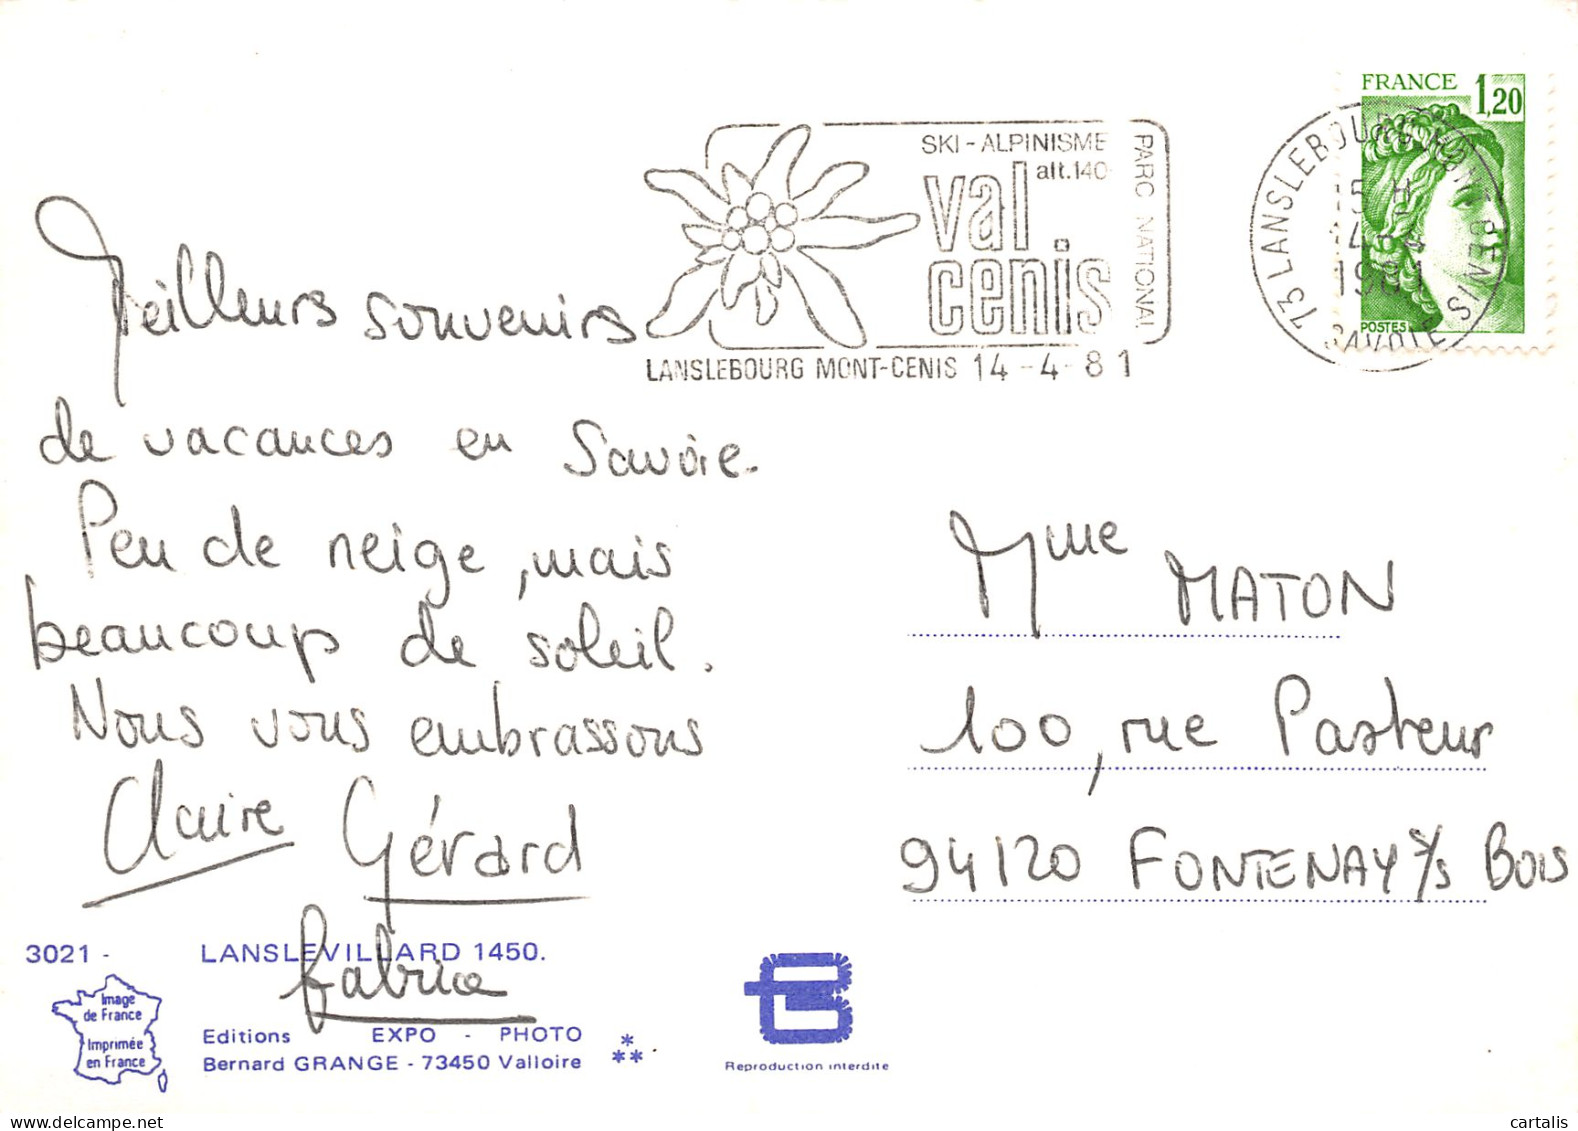 FRANCE 1,20
POSTES
73 LANSLEBOURG MONT CENIS
15 H
14-4
1981
SAVOIE
SKI - ALPINISME
alt.140
val
cenis
PARC NATIONAL
LANSLEBOURG MONT-CENIS 14 - 4 - 81
Meilleurs souvenirs
de vacances en Savoie.
Peu de neige, mais
beaucoup de soleil.
Nous vous embrassons
Claire Gérard
Fabrice
Mme MATON
100, rue Pasteur
94120 FONTENAY s/s BOIS
3021 - LANSLEVILLARD 1450.
Image
de France
Imprimée
en France
Editions EXPO - PHOTO
Bernard GRANGE - 73450 Valloire
Reproduction interdite
cartalis